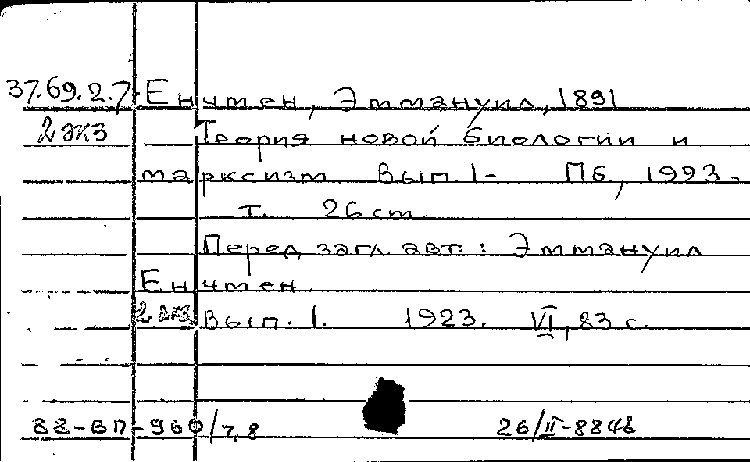 37.69.2.7 Енчмен, Эммануил, 1891
2 экз Теория новой биологии и
марксизм Вып. 1- Пб, 1923-
т. 26 cm
Перед загл. авт.: Эммануил
Енчмен.
2 экз Вып. 1. 1923. VI, 83 с.
82-ВП-960/7,8 26/II-